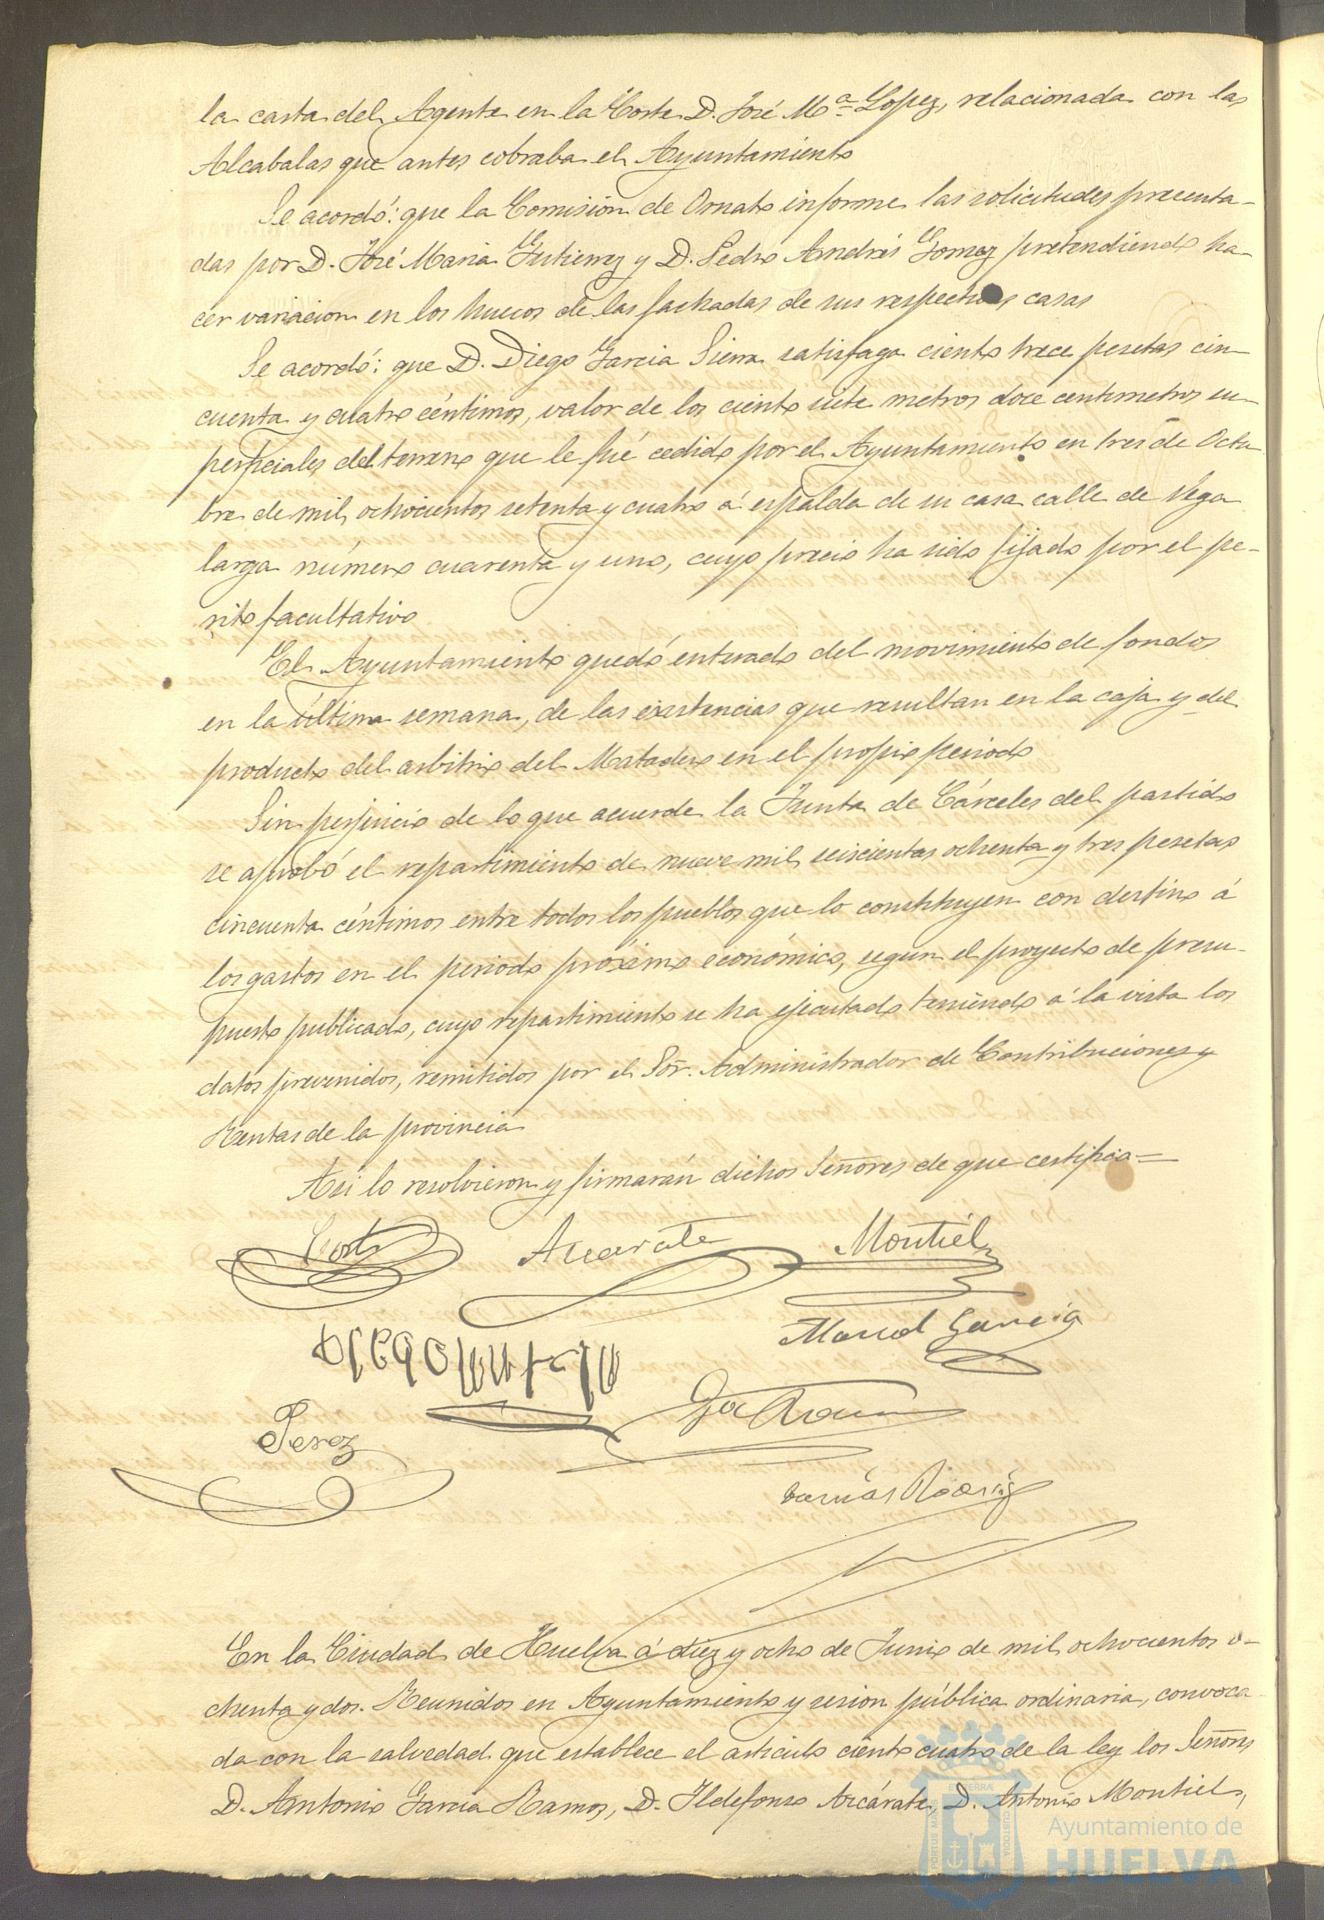 la carta del Agente en la Corte D. José Mª Lopez, relacionada con las
Alcabalas que antes cobraba el Ayuntamiento
Se acordó: que la Comision de Ornato informe las solicitudes presenta-
das por D. José Maria Gutierrez y D. Pedro Andrés Gomez pretendiendo ha-
cer variacion en los huecos de las fachadas de sus respectivas casas
Se acordó: que D. Diego Garcia Sierra satisfaga ciento trece pesetas cin-
cuenta y cuatro céntimos, valor de los ciento siete metros doce centimetros su-
perficiales del terreno que le fué cedido por el Ayuntamiento en tres de Octu-
bre de mil ochocientos setenta y cuatro á espalda de su casa calle de Vega
larga número cuarenta y uno, cuyo precio ha sido fijado por el pe-
rito facultativo
El Ayuntamiento quedó enterado del movimiento de fondos
en la última semana, de las existencias que resultan en la caja y del
producto del arbitrio del Matadero en el propio periodo
Sin perjuicio de lo que acuerde la Junta de Cárceles del partido
se aprobó el repartimiento de nueve mil seiscientas ochenta y tres pesetas
cincuenta céntimos entre todos los pueblos que lo constituyen con destino á
los gastos en el periodo próximo económico, segun el proyecto de presu-
puesto publicado, cuyo repartimiento se ha ejecutado teniendo á la vista los
datos prevenidos, remitidos por el Sõr. Administrador de Contribuciones y
Rentas de la provincia
Asi lo resolvieron y firmarán dichos Señores de que certifico=
Azcarate Montiel
Manuel Garcia
Perez
Garcia Ramos
En la Ciudad de Huelva á diez y ocho de Junio de mil ochocientos o-
chenta y dos. Reunidos en Ayuntamiento y sesion pública ordinaria, convoca-
da con la salvedad que establece el articulo ciento cuatro de la ley los Señores
D. Antonio Garcia Ramos, D. Ildefonso Azcárate, D. Antonio Montiel,
Ayuntamiento de
HUELVA